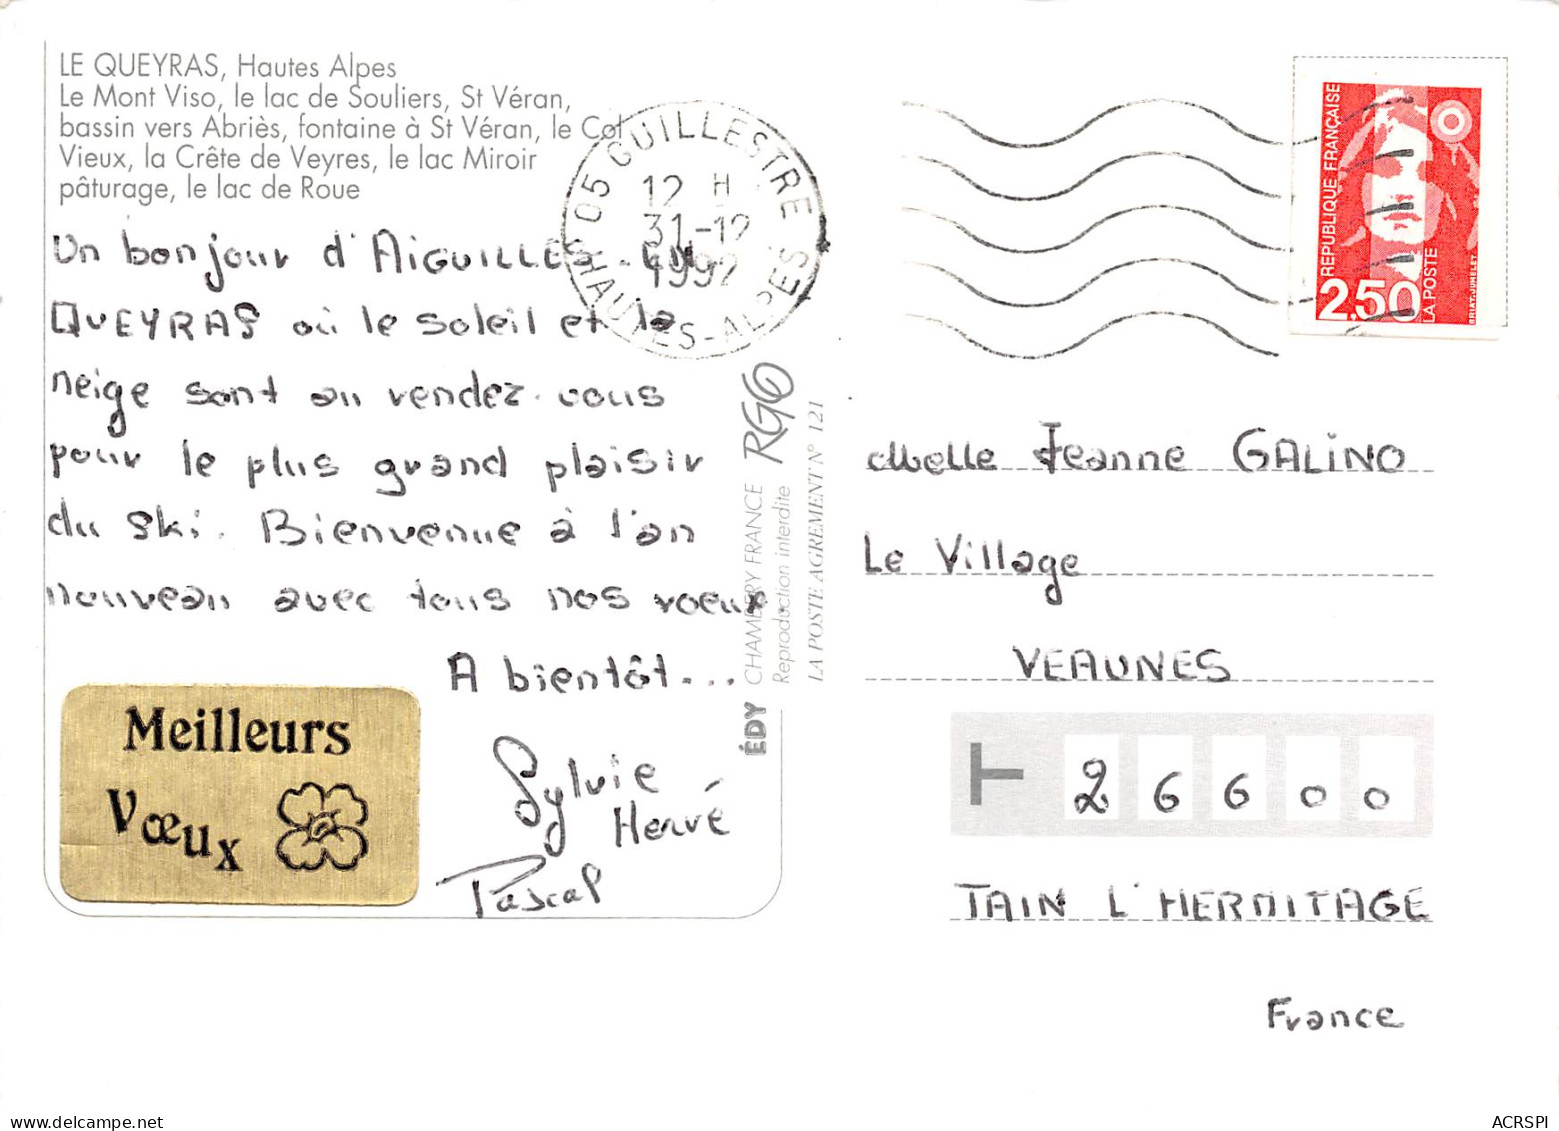 LE QUEYRAS, Hautes Alpes
Le Mont Viso, le lac de Souliers, St Véran,
bassin vers Abriès, fontaine à St Véran, le Col
Vieux, la Crête de Veyres, le lac Miroir
pâturage, le lac de Roue
05 GUILLESTRE
12 H
31-12
1992
HAUTES-ALPES
Un bonjour d'AIGUILLES. EN
QUEYRAS où le soleil et la
neige sont au rendez-vous
pour le plus grand plaisir
du ski. Bienvenue à l'an
nouveau avec tous nos voeux.
A bientôt...
Sylvie
Hervé
Pascal
Meilleurs
Vœux
ÉDY CHAMBERY FRANCE RGO
Reproduction interdite
LA POSTE AGREMENT N° 121
REPUBLIQUE FRANÇAISE
2,50
LA POSTE
BRIAT-JUMELET
Melle Jeanne GALINO
Le Village
VEAUNES
26600
TAIN L'HERMITAGE
France
ACRSPI